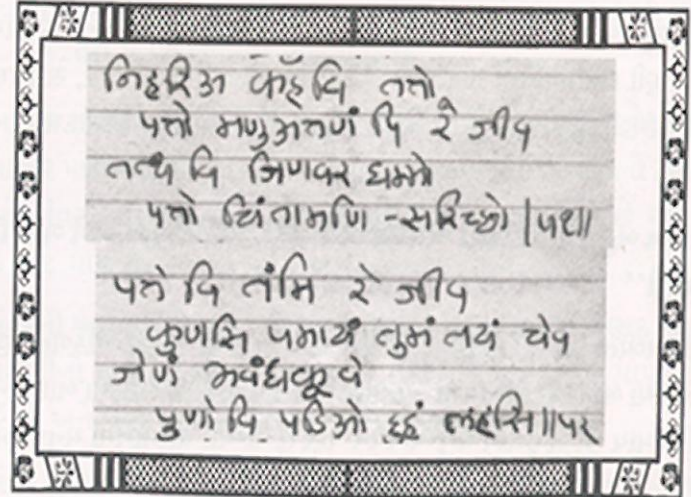 निहरिअ कहँ वि तत्तो,
पत्तो मणुअत्तणं वि रे जीव
तत्थ वि जिणवर धम्मो
पत्तो चिंतामणि -सरिच्छो |५१॥
पत्ते वि तंमि रे जीव
कुणसि पमायं तुमं तयं चेव
जेणं भवंधकूवे
पुणो वि पडिओ दुहं लहसि॥५२